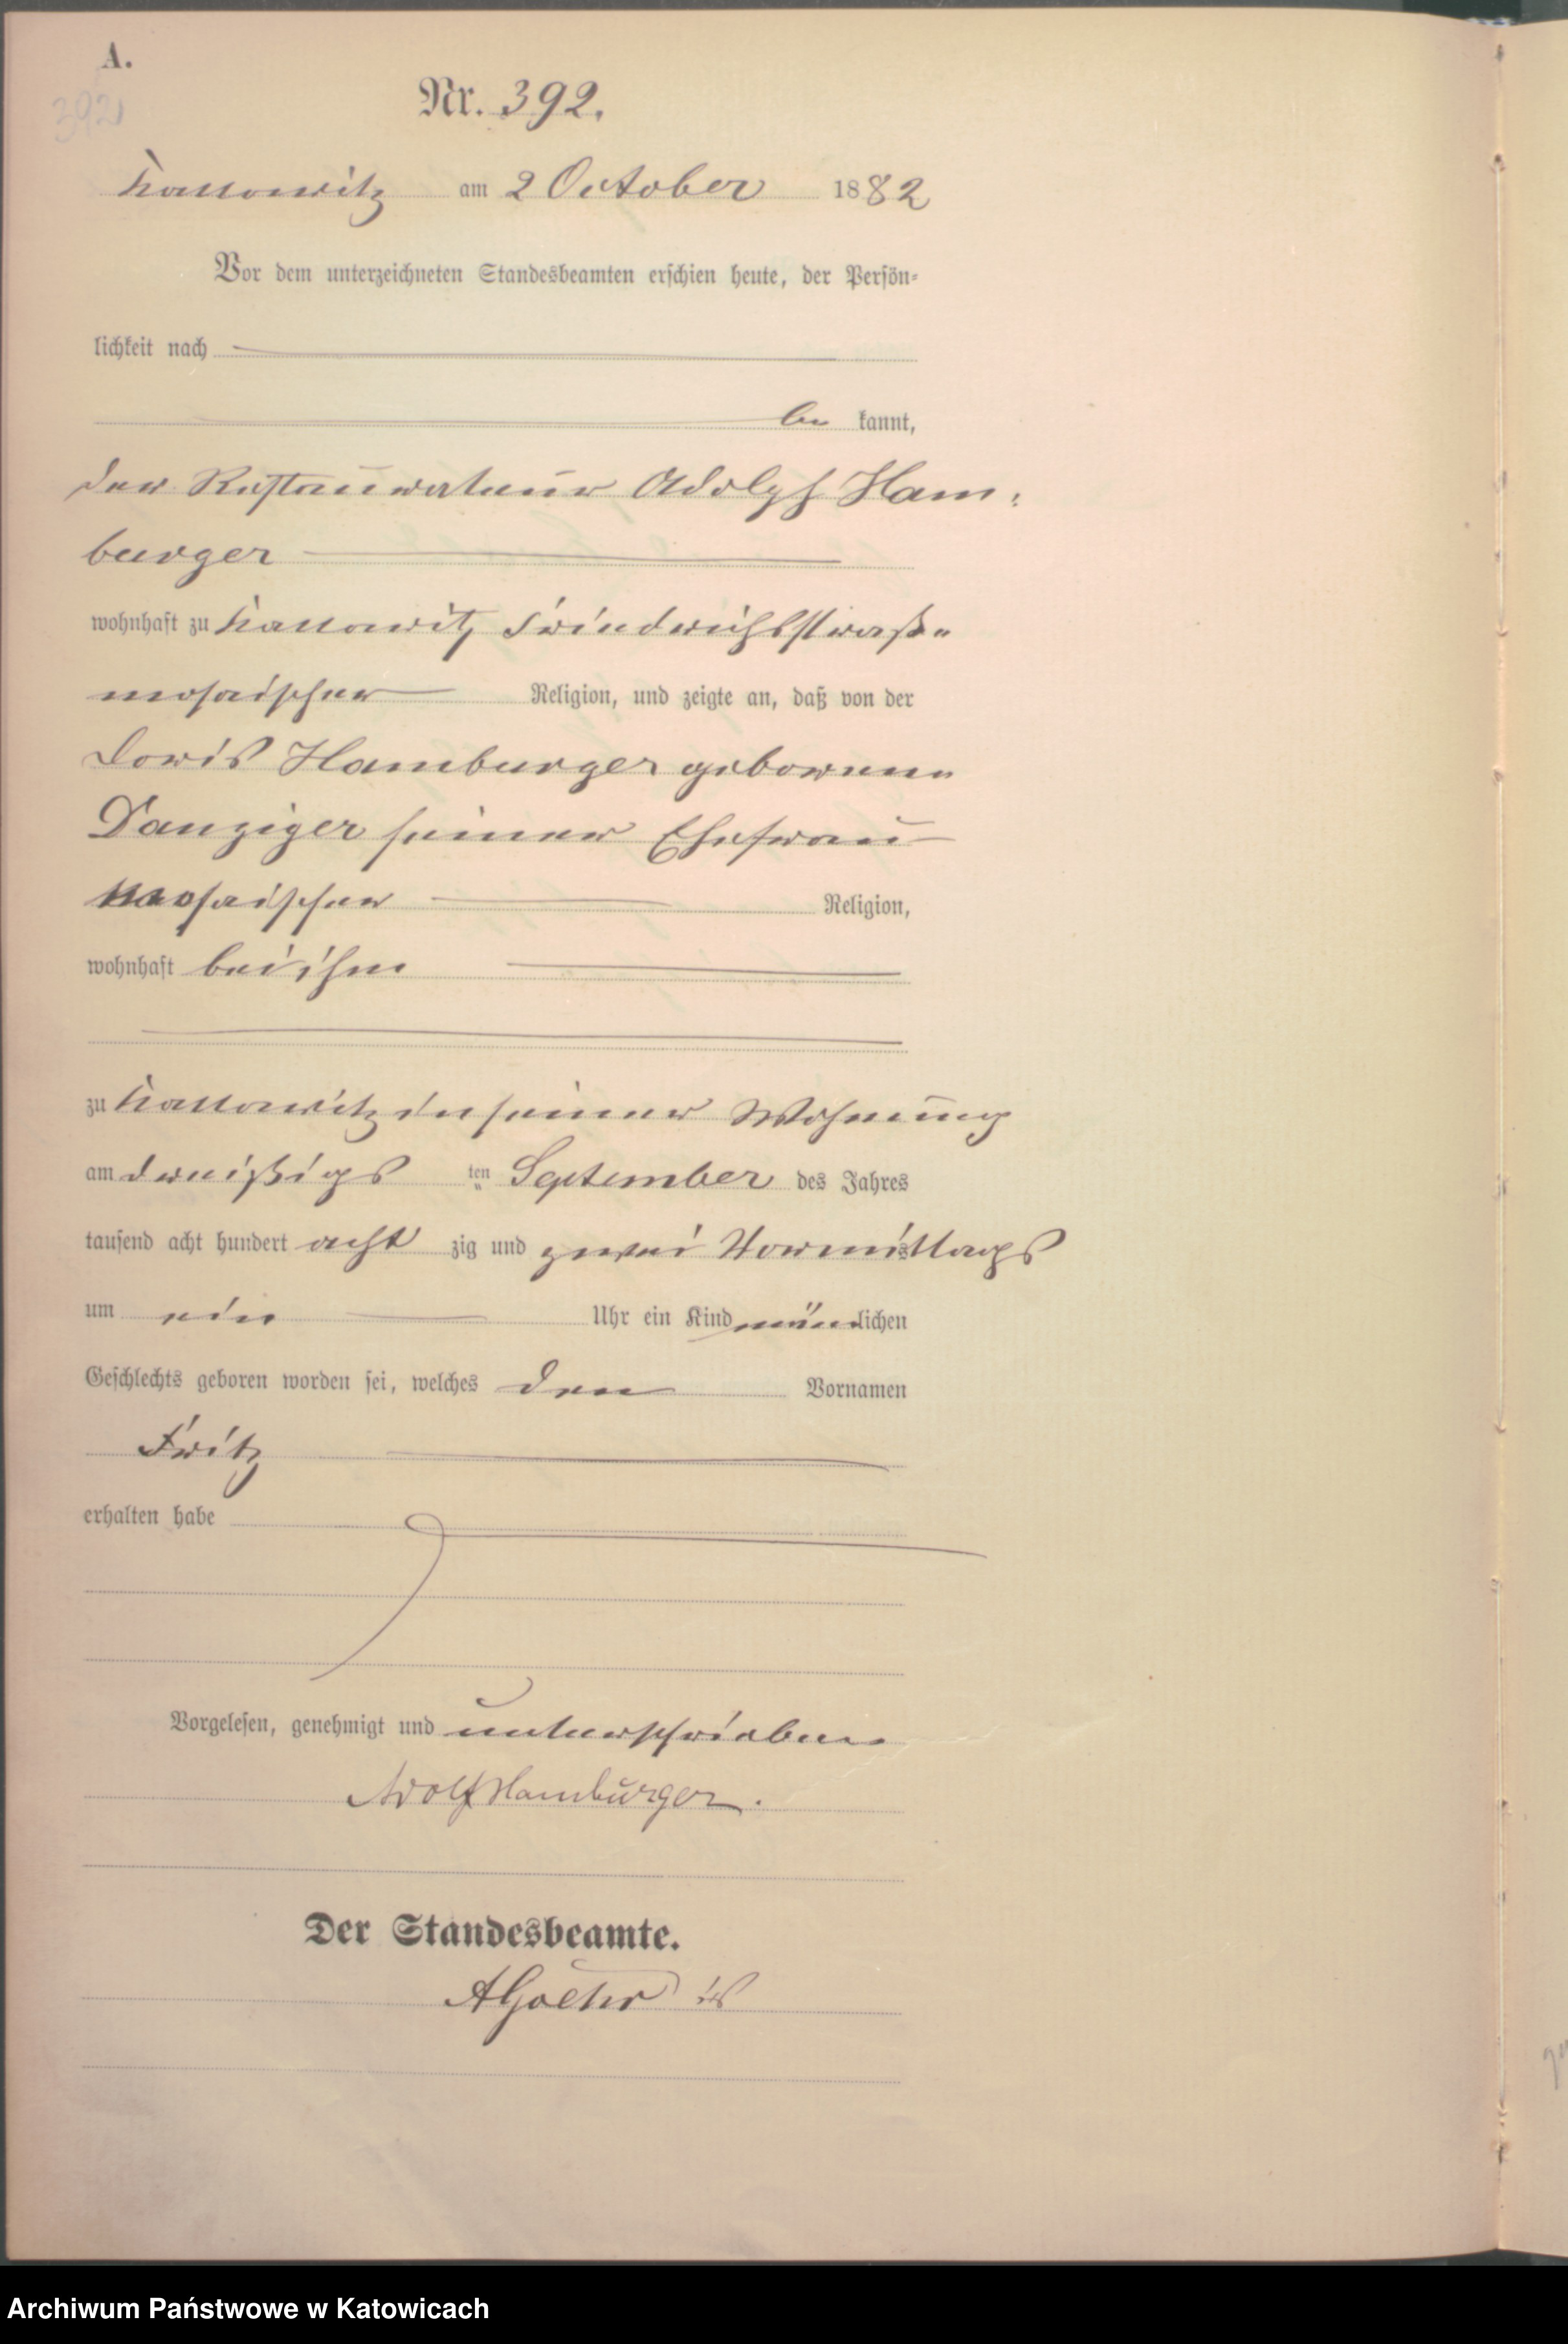 A.
392
Nr. 392.
Kattowitz am 2 October 1882
Vor dem unterzeichneten Standesbeamten erschien heute, der Persön-
lichkeit nach
be kannt,
der Restaurateur Adolph Ham-
burger
wohnhaft zu Kattowitz Friedrichsstraße
mosaischer Religion, und zeigte an, daß von der
Doris Hamburger geborenen
Danziger seiner Ehefrau
mosaischer Religion,
wohnhaft bei ihm
zu Kattowitz in seiner Wohnung
am dreißigs ten September des Jahres
tausend acht hundert acht zig und zwei Vormittags
um ein Uhr ein Kind männlichen
Geschlechts geboren worden sei, welches den Vornamen
Fritz
erhalten habe
Vorgelesen, genehmigt und unterschrieben
Adolf Hamburger.
Der Standesbeamte.
Archiwum Państwowe w Katowicach